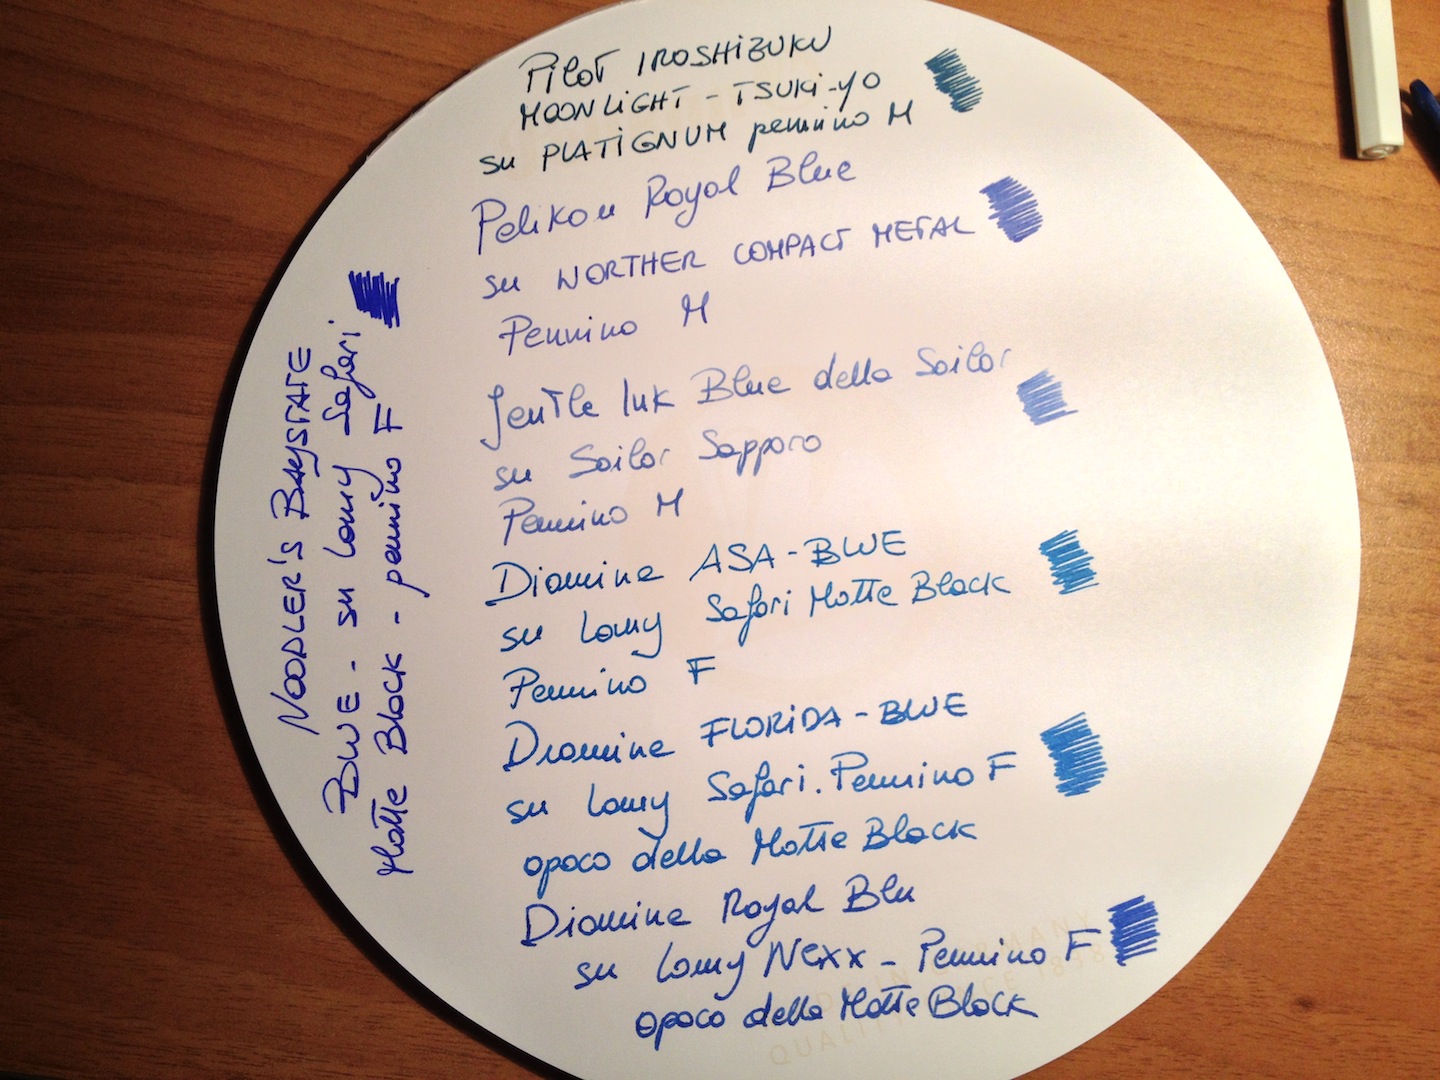 Pilot IROSHIZUKU
MOONLIGHT - TSUKI-YO
su PLATIGNUM pennino M
Pelikan Royal Blue
su WORTHER COMPACT METAL
Pennino M
Jentle Ink Blue della Sailor
su Sailor Sapporo
Pennino M
Diamine ASA-BLUE
su Lamy Safari Matte Black
Pennino F
Diamine FLORIDA-BLUE
su Lamy Safari. Pennino F
opaco della Matte Black
Diamine Royal Blu
su Lamy Nexx - Pennino F
opaco della Matte Black
NOODLER'S BAYSTATE
BLUE - su Lamy Safari
Matte Black - pennino F
IN GERMANY
SINCE 1838
QUALITY